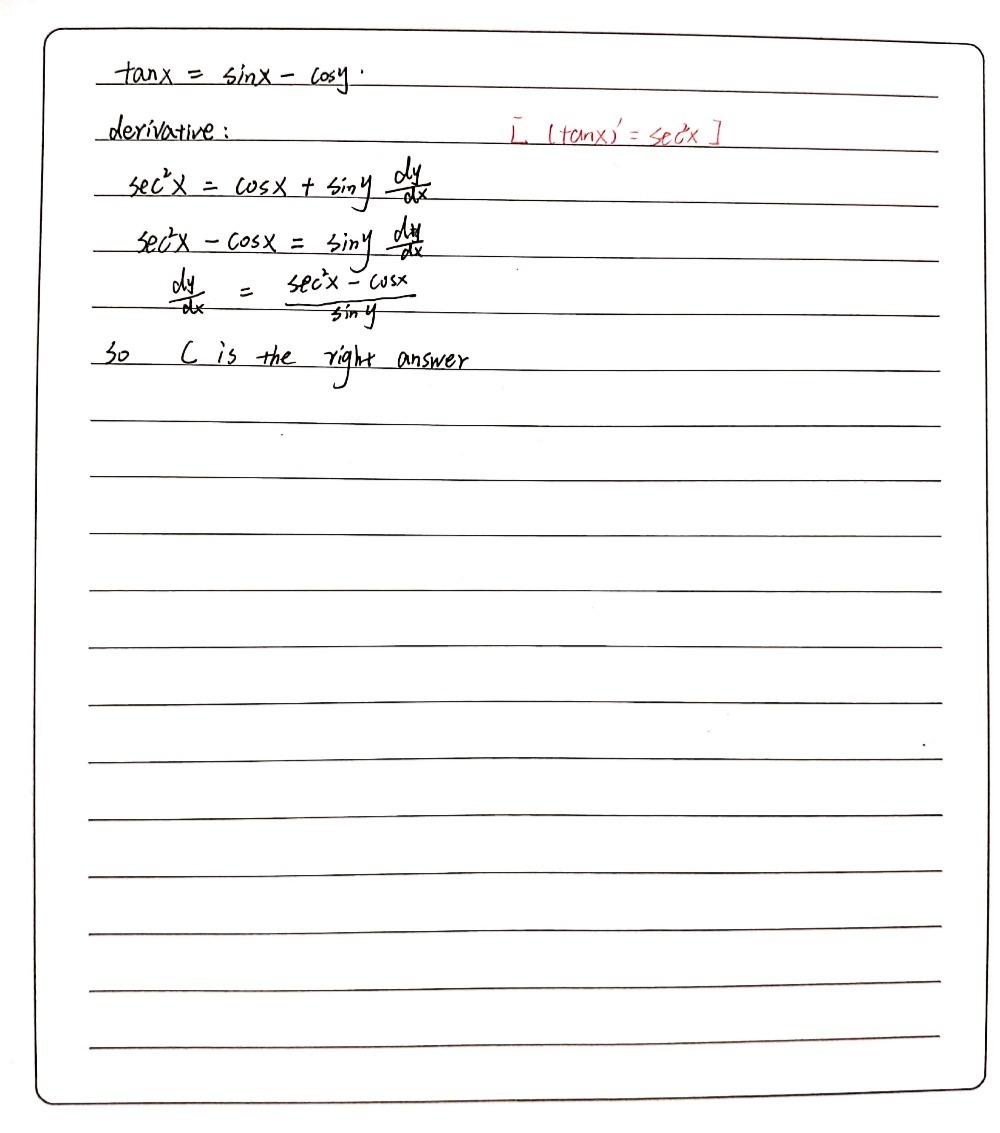 tanx = sinx - cosy.
derivative: [ (tanx)' = sec²x ]
sec²x = cosx + siny dy/dx
sec²x - cosx = siny dy/dx
dy/dx = (sec²x - cosx)/siny
so C is the right answer